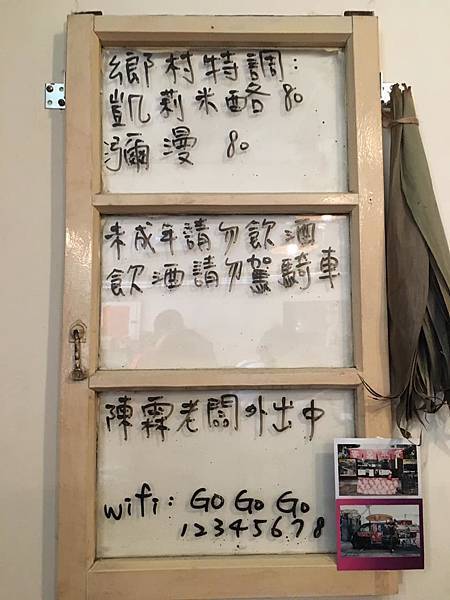 鄉村特調:
凱莉米酪 80
瀰漫 80
未成年請勿飲酒
飲酒請勿駕騎車
陳霖老闆外出中
wifi: GO GO Go
12345678